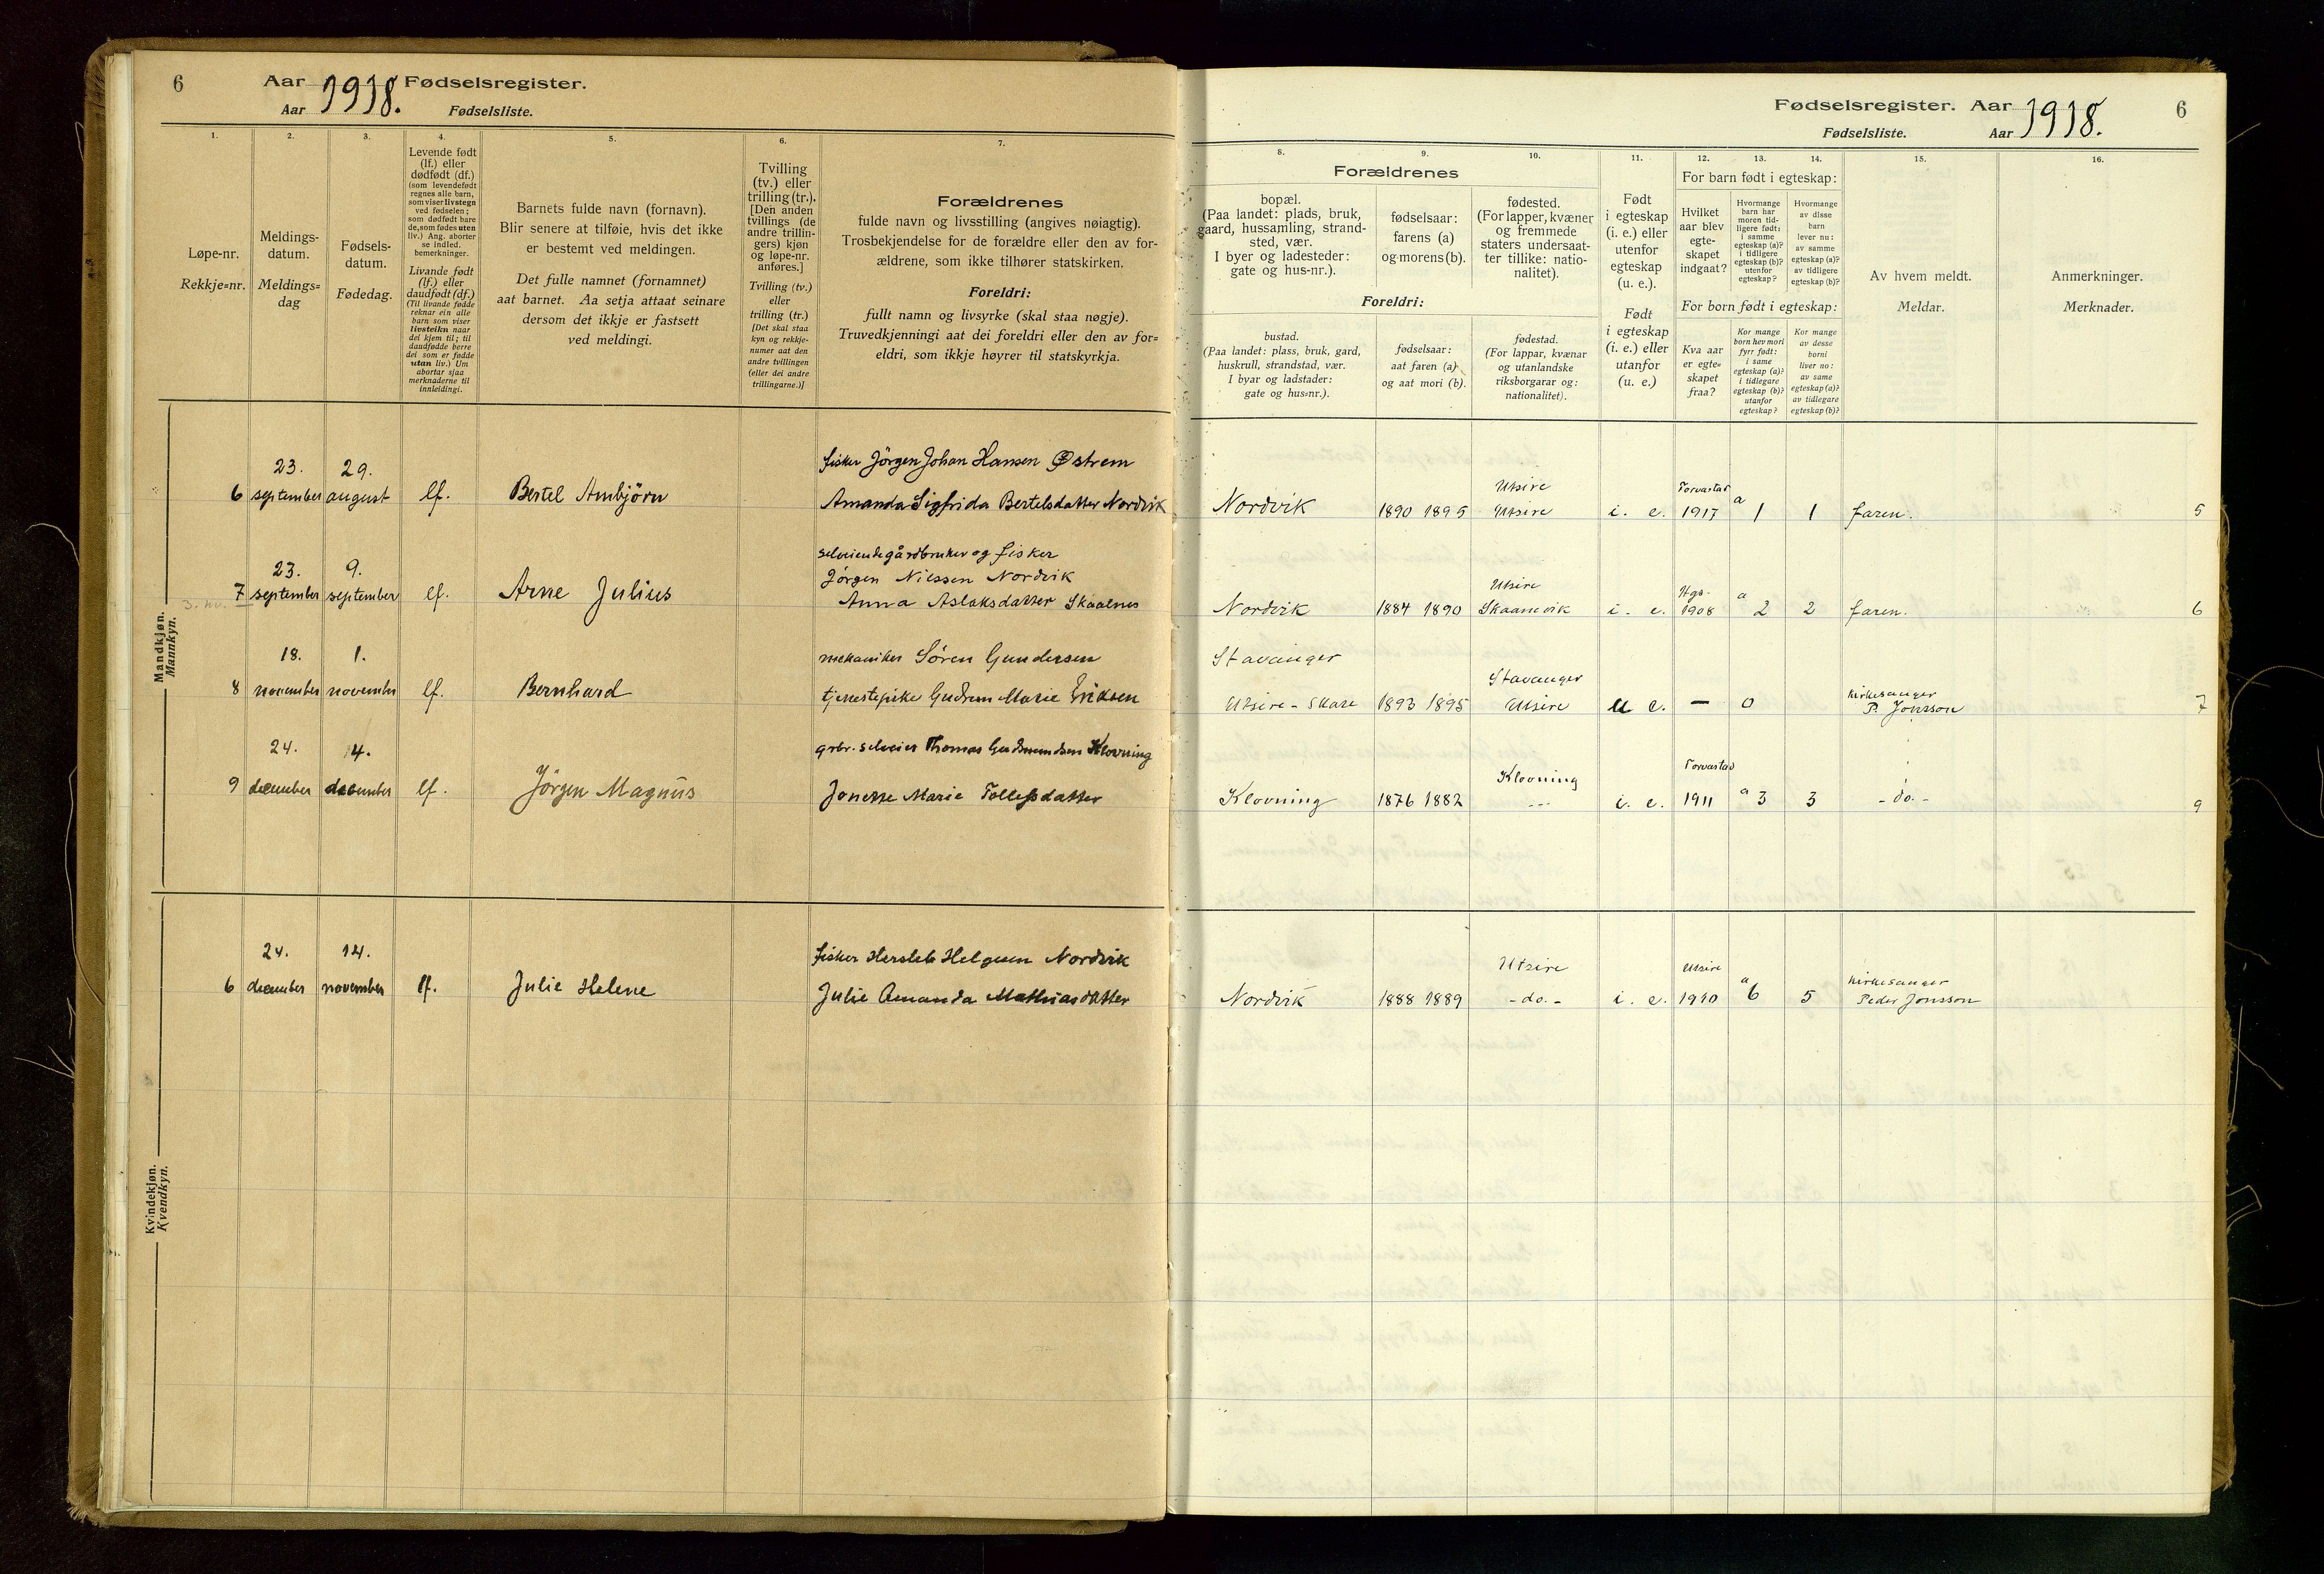 6 Aar 1918. Fødselsregister.
Aar Fødselsliste.
1. 2. 3. 4. 5. 6. 7.
Løpe-nr.
Rekkje=nr.
Meldings-
datum.
Meldings=
dag
Fødsels-
datum.
Fødedag.
Levende født
(lf.) eller
dødfødt (df.)
(som levendefødt
regnes alle barn,
som viser livstegn
ved fødselen;
som dødfødt bare
de, som fødes uten
liv.) Ang. aborter
se indled.
bemerkninger.
Livande født
(lf.) eller
daudfødt (df.)
(Til livande fødde
reknar ein alle
barn som viser
livsteikn naar
dei kjem til; til
daudfødde berre
dei som er fødde
utan liv.) Um
abortar sjaa
merknaderne til
innleidingi.
Barnets fulde navn (fornavn).
Blir senere at tilføie, hvis det ikke
er bestemt ved meldingen.
Det fulle namnet (fornamnet)
aat barnet. Aa setja attaat seinare
dersom det ikkje er fastsett
ved meldingi.
Tvilling
(tv.) eller
trilling (tr.).
[Den anden
tvillings (de
andre trillin-
gers) kjøn
og løpe-nr.
anføres.]
Tvilling (tv.)
eller
trilling (tr.)
[Det skal staa
kyn og rekkje-
numer aat den
andre tvillingen
(eller dei andre
trillingarne.)]
Forældrenes
fulde navn og livsstilling (angives nøiagtig).
Trosbekjendelse for de forældre eller den av for-
ældrene, som ikke tilhører statskirken.
Foreldri:
fullt namn og livsyrke (skal staa nøgje).
Truvedkjenningi aat dei foreldri eller den av for=
eldri, som ikkje høyrer til statskyrkja.
Mandkjøn.
Mannkyn.
23. 29. fisker Jörgen Johan Hansen Østrem
6 september august lf. Bertel Arnbjörn Amanda Sigfrida Bertelsdatter Nordvik
selveiende gårdbruker og fisker
23. 9. Jörgen Nilssen Nordvik
7 september september lf. Arne Julius Anna Aslaksdatter Skaalnes
18. 1. mekaniker Sören Gundersen
8 november november lf. Bernhard tjenestepike Gudrun Marie Eriksen
24. 14. grbr. selveier Thomas Gudmundsen Klovning
9 december december lf. Jörgen Magnus Jonette Marie Tollefsdatter
Kvindekjøn.
Kvendkyn.
24. 14. fisker Hersleb Helgesen Nordvik
6 december november lf. Julie Helene Julie Amanda Mathiasdatter
Fødselsregister. Aar 1918. 6
Fødselsliste. Aar
8. 9. 10. 11. 12. 13. 14. 15. 16.
Forældrenes
bopæl.
(Paa landet: plads, bruk,
gaard, hussamling, strand-
sted, vær.
I byer og ladesteder:
gate og hus-nr.).
fødselsaar:
farens (a)
og morens (b).
fødested.
(For lapper, kvæner
og fremmede
staters undersaat-
ter tillike: natio-
nalitet).
Foreldri:
bustad.
(Paa landet: plass, bruk, gard,
huskrull, strandstad, vær.
I byar og ladstader:
gate og hus=nr.).
fødselsaar:
aat faren (a)
og aat mori (b).
fødestad.
(For lappar, kvænar
og utanlandske
riksborgarar og:
nationalitet).
Født
i egteskap
(i. e.) eller
utenfor
egteskap
(u. e.).
Født
i egteskap
(i. e.) eller
utanfor
(u. e.)
For barn født i egteskap:
Hvilket
aar blev
egte-
skapet
indgaat?
Hvormange
barn har
moren tid-
ligere født:
i samme
egteskap (a)?
i tidligere
egteskap (b)?
utenfor
egteskap?
Hvormange
av disse
barn
lever nu:
av samme
egteskap (a)?
av tidligere
egteskap (b)?
For born født i egteskap:
Kva aar
er egte=
skapet
fraa?
Kor mange
born hev mori
fyrr født:
i same
egteskap (a)?
i tidlegare
egteskap (b)?
utanfor
egteskap?
Kor mange
av desse
borni
liver no:
av same
egteskap (a)?
av tidlegare
egteskap (b)?
Av hvem meldt.
Meldar.
Anmerkninger.
Merknader.
Utsire Torvastad
Nordvik 1890 1895 Utsire i. e. 1917 a 1 1 faren. 5
Utsire Hgs.
Nordvik 1884 1890 Skaanevik i. e. 1908 a 2 2 faren. 6
Stavanger Stavanger kirkesanger
Utsire - Skare 1893 1895 Utsire u e. — 0 P. Jonsson 7
Klovning Torvastad
Klovning 1876 1882 --- i. e. 1911 a 3 3 - do. - 9
Utsire Utsire kirkesanger
Nordvik 1888 1889 - do. - i. e. 1910 a 6 5 Peder Jonsson